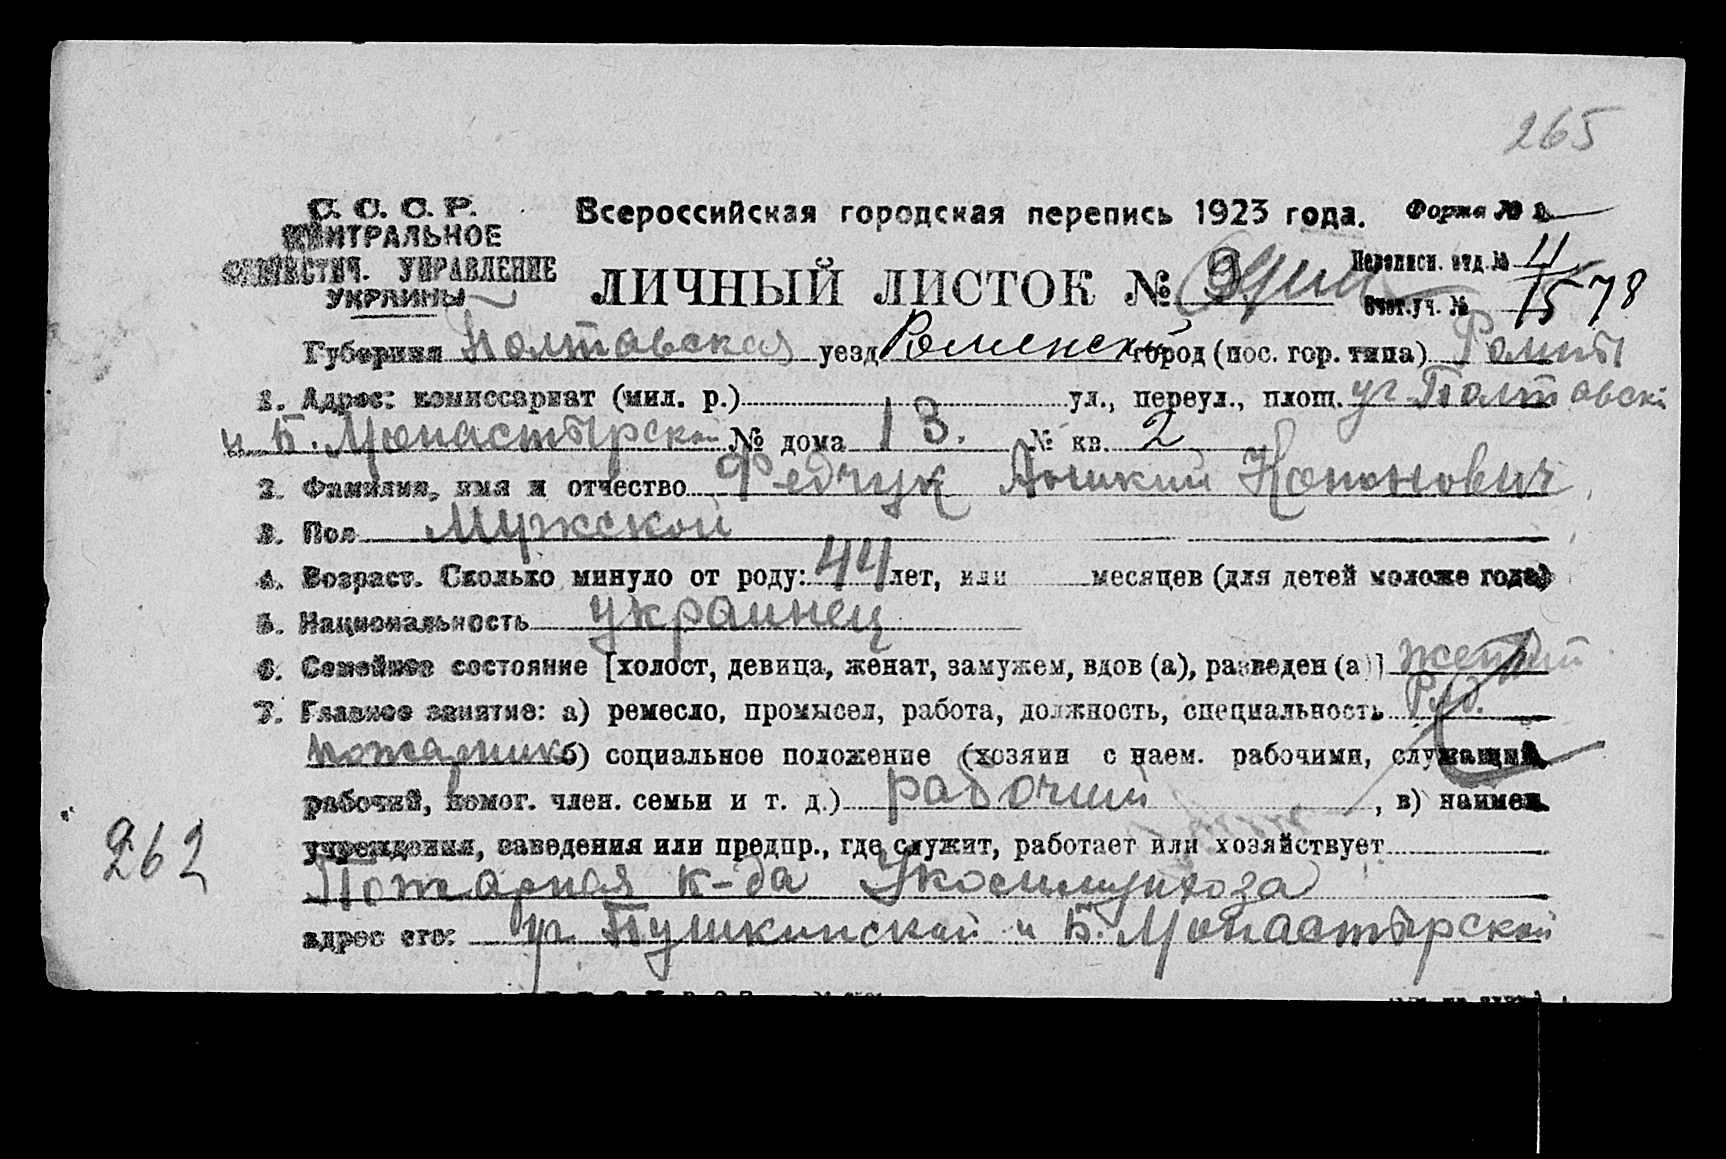 265
С. С. С. Р.
ЦЕНТРАЛЬНОЕ
СТАТИСТИЧ. УПРАВЛЕНИЕ
УКРАИНЫ
Всероссийская городская перепись 1923 года.
Форма №
ЛИЧНЫЙ ЛИСТОК № 9
Переписн. отд. № 4
Счет. уч. № 15 78
Губерния Полтавская уезд Роменский город (пос. гор. типа) Ромны
1. Адрес: комиссариат (мил. р.) ул., переул., площ. уг. Полтавской
и Б. Монастырской № дома 13. № кв. 2
2. Фамилия, имя и отчество Федчук Кононович
3. Пол Мужской
4. Возраст. Сколько минуло от роду: 44 лет, или месяцев (для детей моложе года)
5. Национальность украинец
6. Семейное состояние [холост, девица, женат, замужем, вдов (а), разведен (а)]
7. Главное занятие: а) ремесло, промысел, работа, должность, специальность
пожарник б) социальное положение (хозяин с наем. рабочими, служащий,
рабочий, помог. член. семьи и т. д.) рабочий, в) наимен.
учреждения, заведения или предпр., где служит, работает или хозяйствует
262
Пожарная к-да
адрес его: уг. Пушкинской и Б. Монастырской